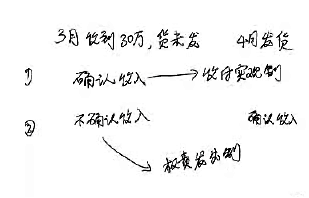 3月收到30万，货未发 4月发货
① 确认收入 → 收付实现制
② 不确认收入 确认收入
权责发生制